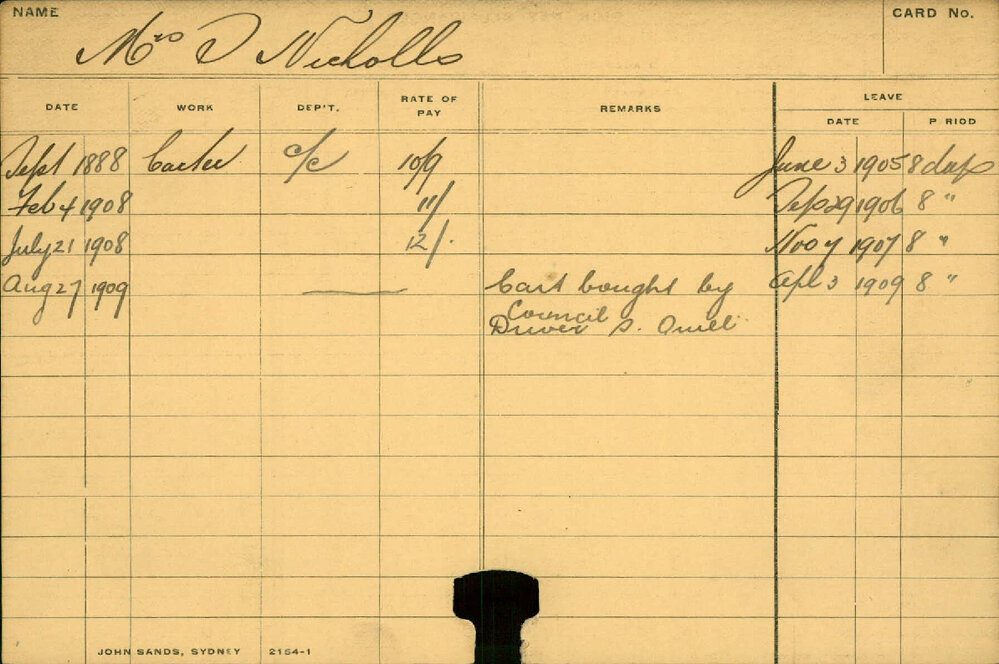 NAME
Mrs D Nicholls
CARD No.
DATE WORK DEP'T. RATE OF PAY REMARKS LEAVE
DATE PERIOD
Sept 1888 Carter c/c 10/9 June 3 1905 8 days
Feb 4 1908 11/ Sep 29 1906 8 "
July 21 1908 12/. Nov 7 1907 8 "
Aug 27 1909 Cart bought by Apl 3 1909 8 "
Council
Driver S.
JOHN SANDS, SYDNEY 2164-1